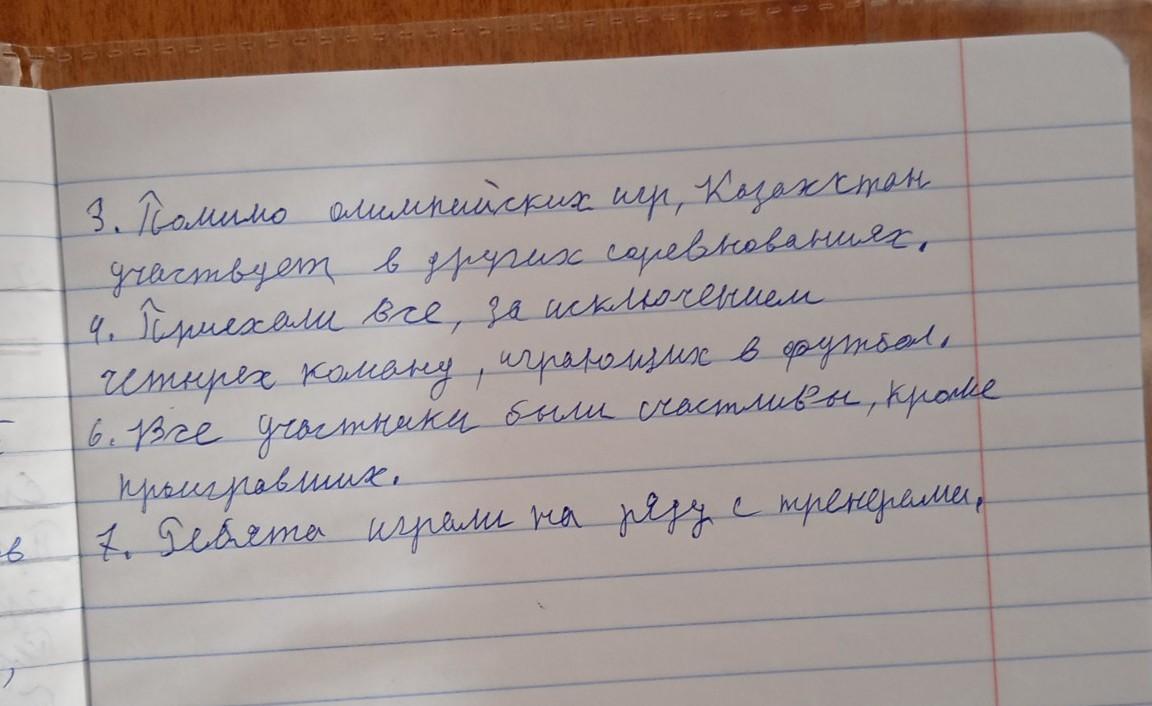 3. Помимо олимпийских игр, Казахстан
участвует в других соревнованиях.
4. Приехали все, за исключением
четырех команд, играющих в футбол.
6. Все участники были счастливы, кроме
проигравших.
7. Ребята играли на ряду с тренерами.
в
,